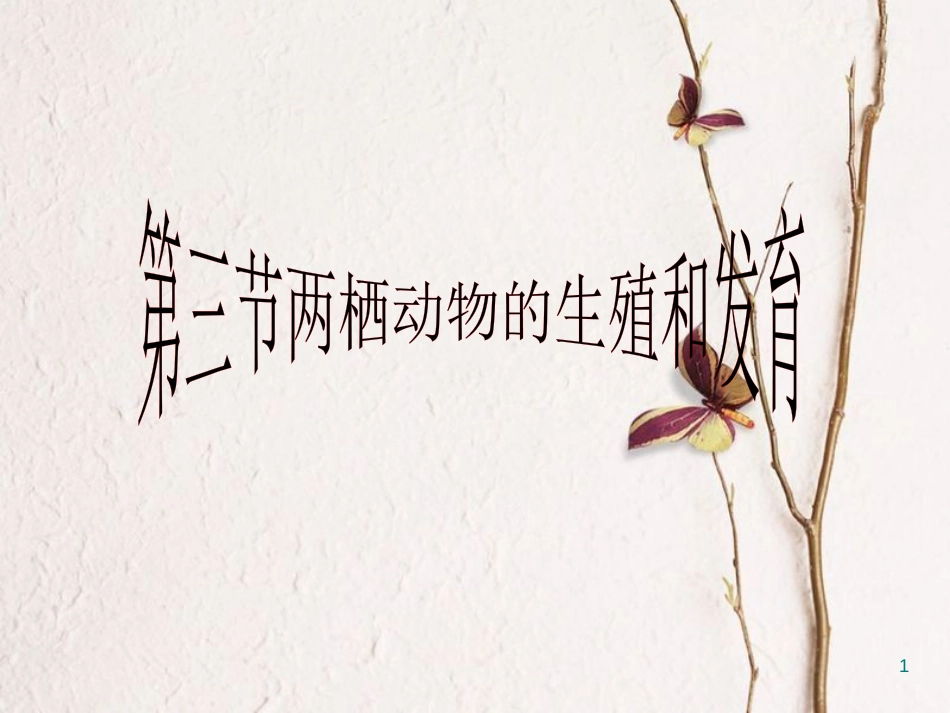 第三节两栖动物的生殖和发育
1